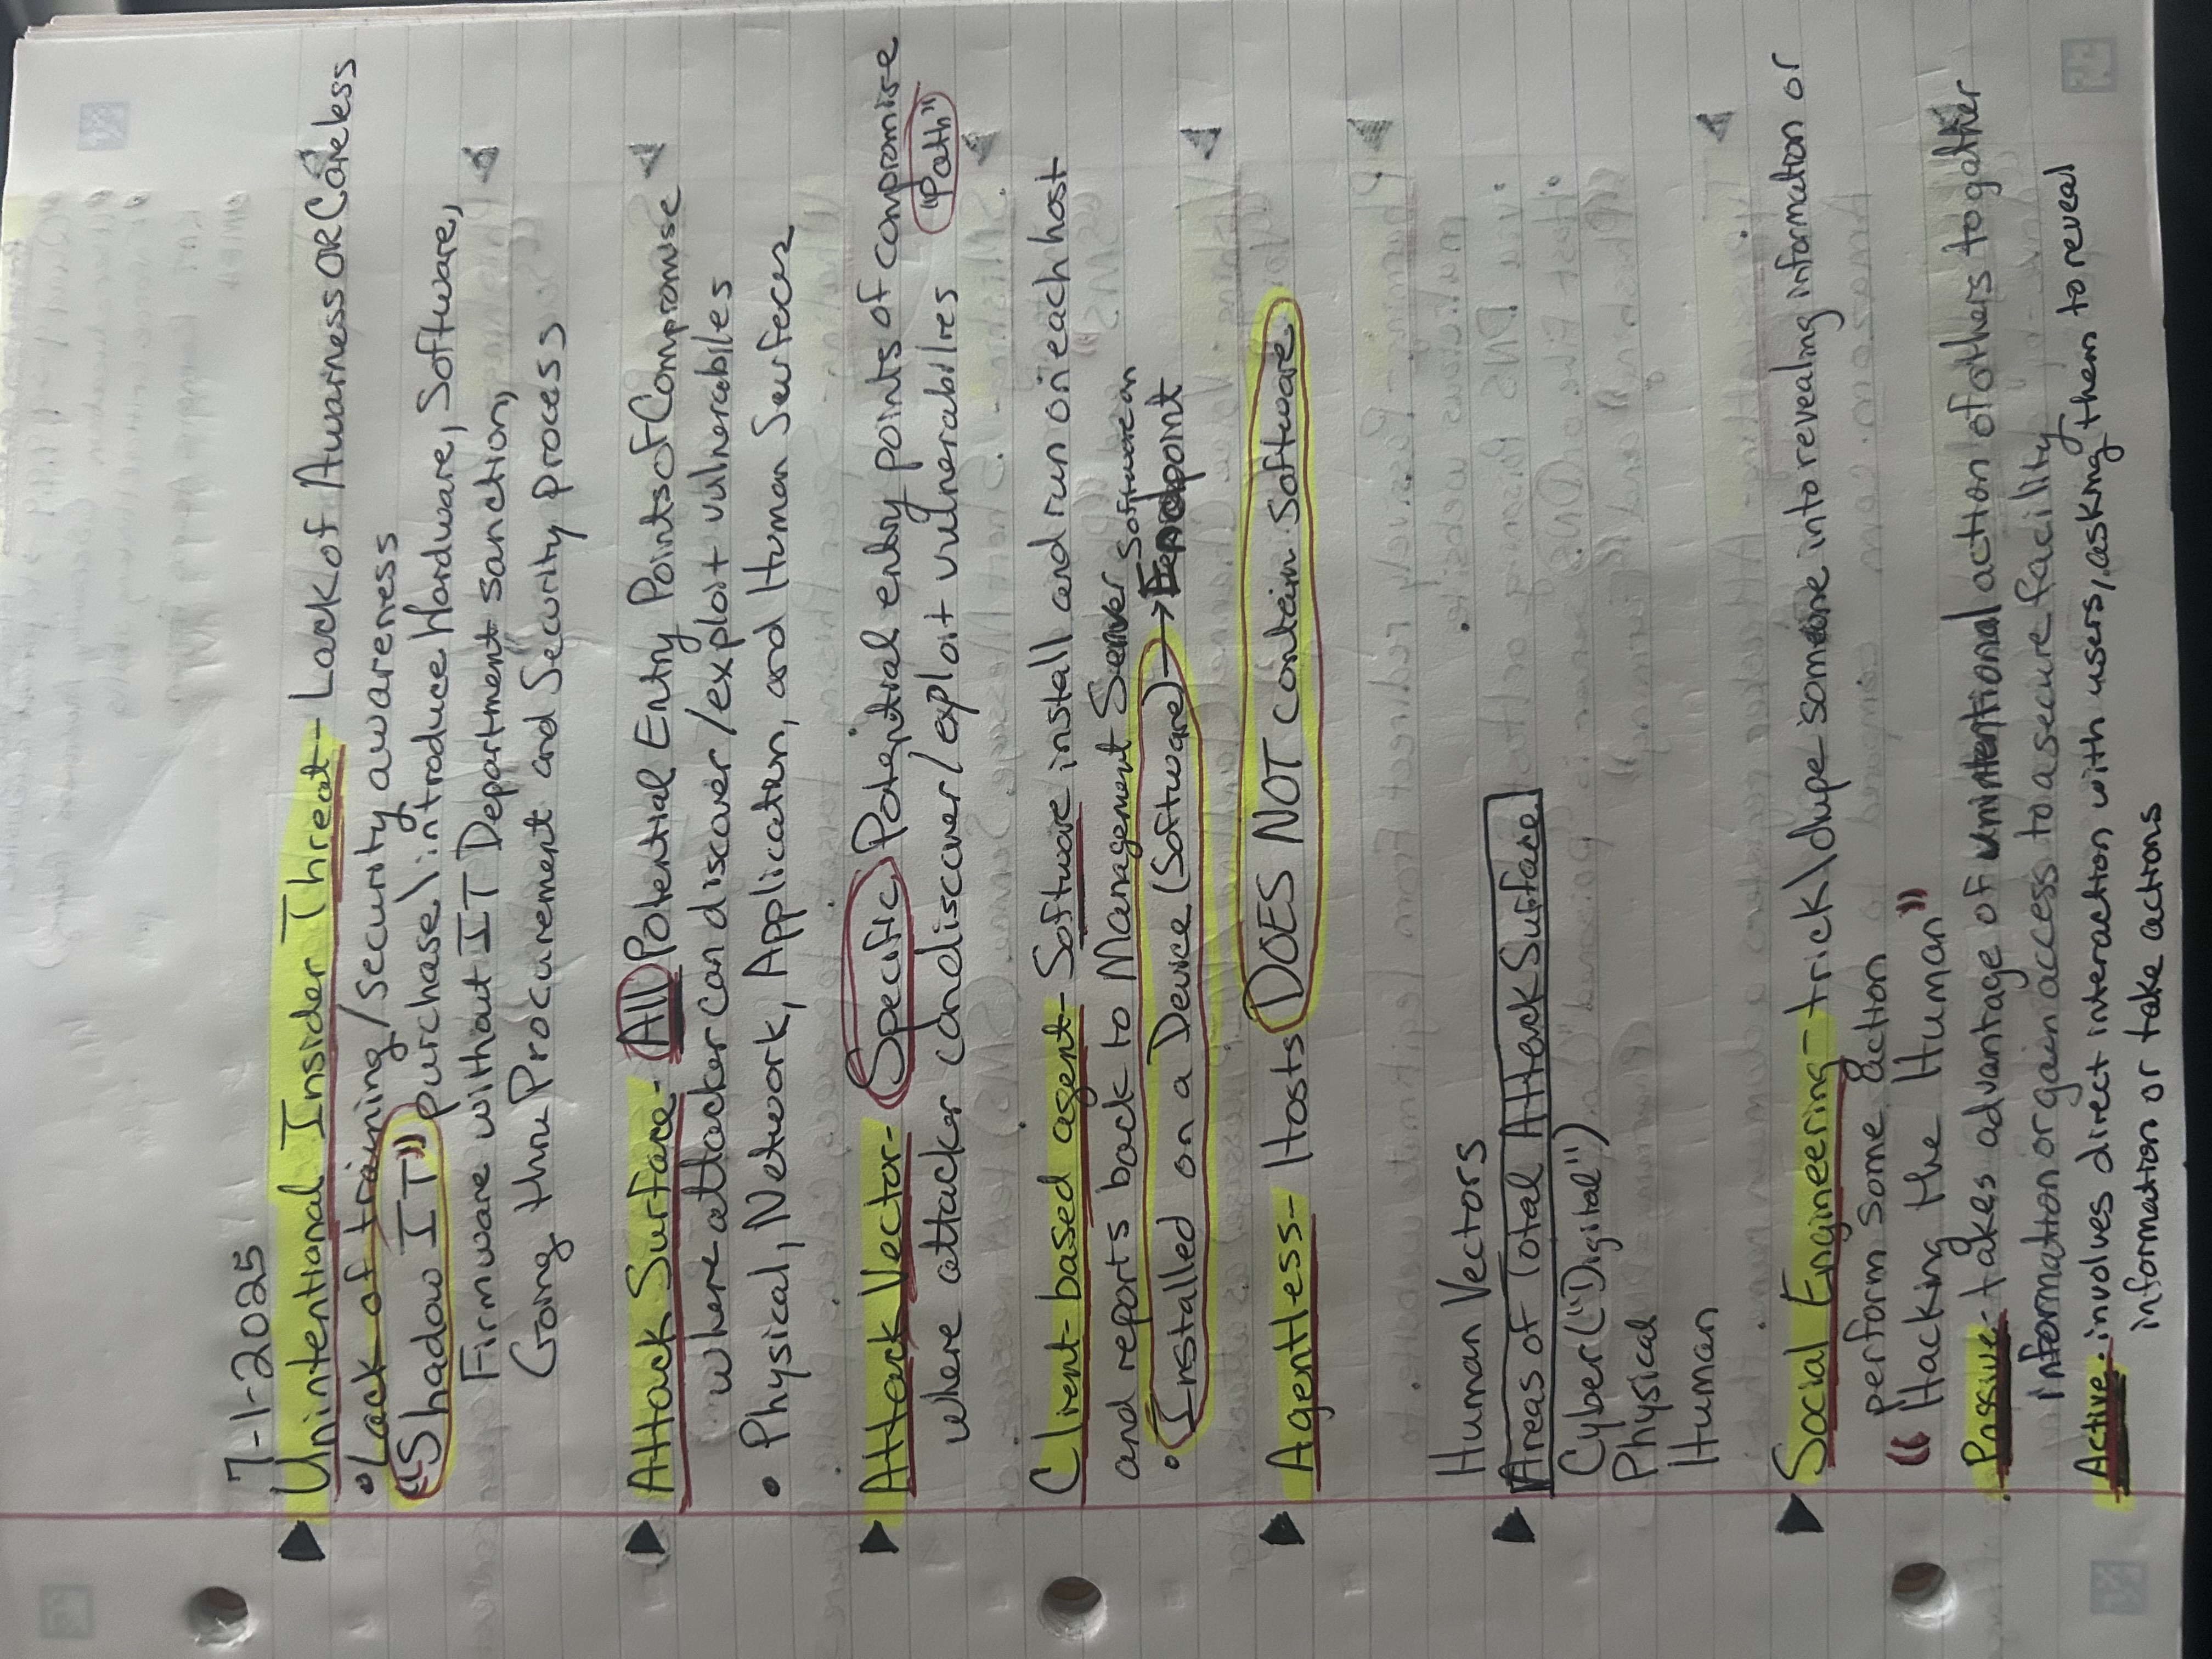 7-1-2025
Unintentional Insider Threat - Lack of Awarness OR Careless
• Lack of training/security awareness
"Shadow IT" purchase\introduce Hardware, Software,
Firmware without IT Department sanction,
Going thru Procurement and Security process
Attack Surface - All Potential Entry Points of Compromise
where attacker can discover/exploit vulnerabiles
• Physical, Network, Application, and Human Surfeces
Attack Vector - Specific Potential entry points of compromise
where attacker can discover/exploit vulnerabilres "Path"
Client-based agent - Software install and run on each host
and reports back to Management Server
• Installed on a Device (Software) → Software on
Endpoint
Agentless - Hosts DOES NOT contain Software
Human Vectors
Areas of Total Attack Surface
Cyber ("Digital")
Physical
Human
Social Engineering - trick\dupe someone into revealing information or
perform some action
"Hacking the Human"
Passive - takes advantage of unintentional action of others to gather
information or gain access to a secure facility
Active - involves direct interaction with users, asking them to reveal
information or take actions